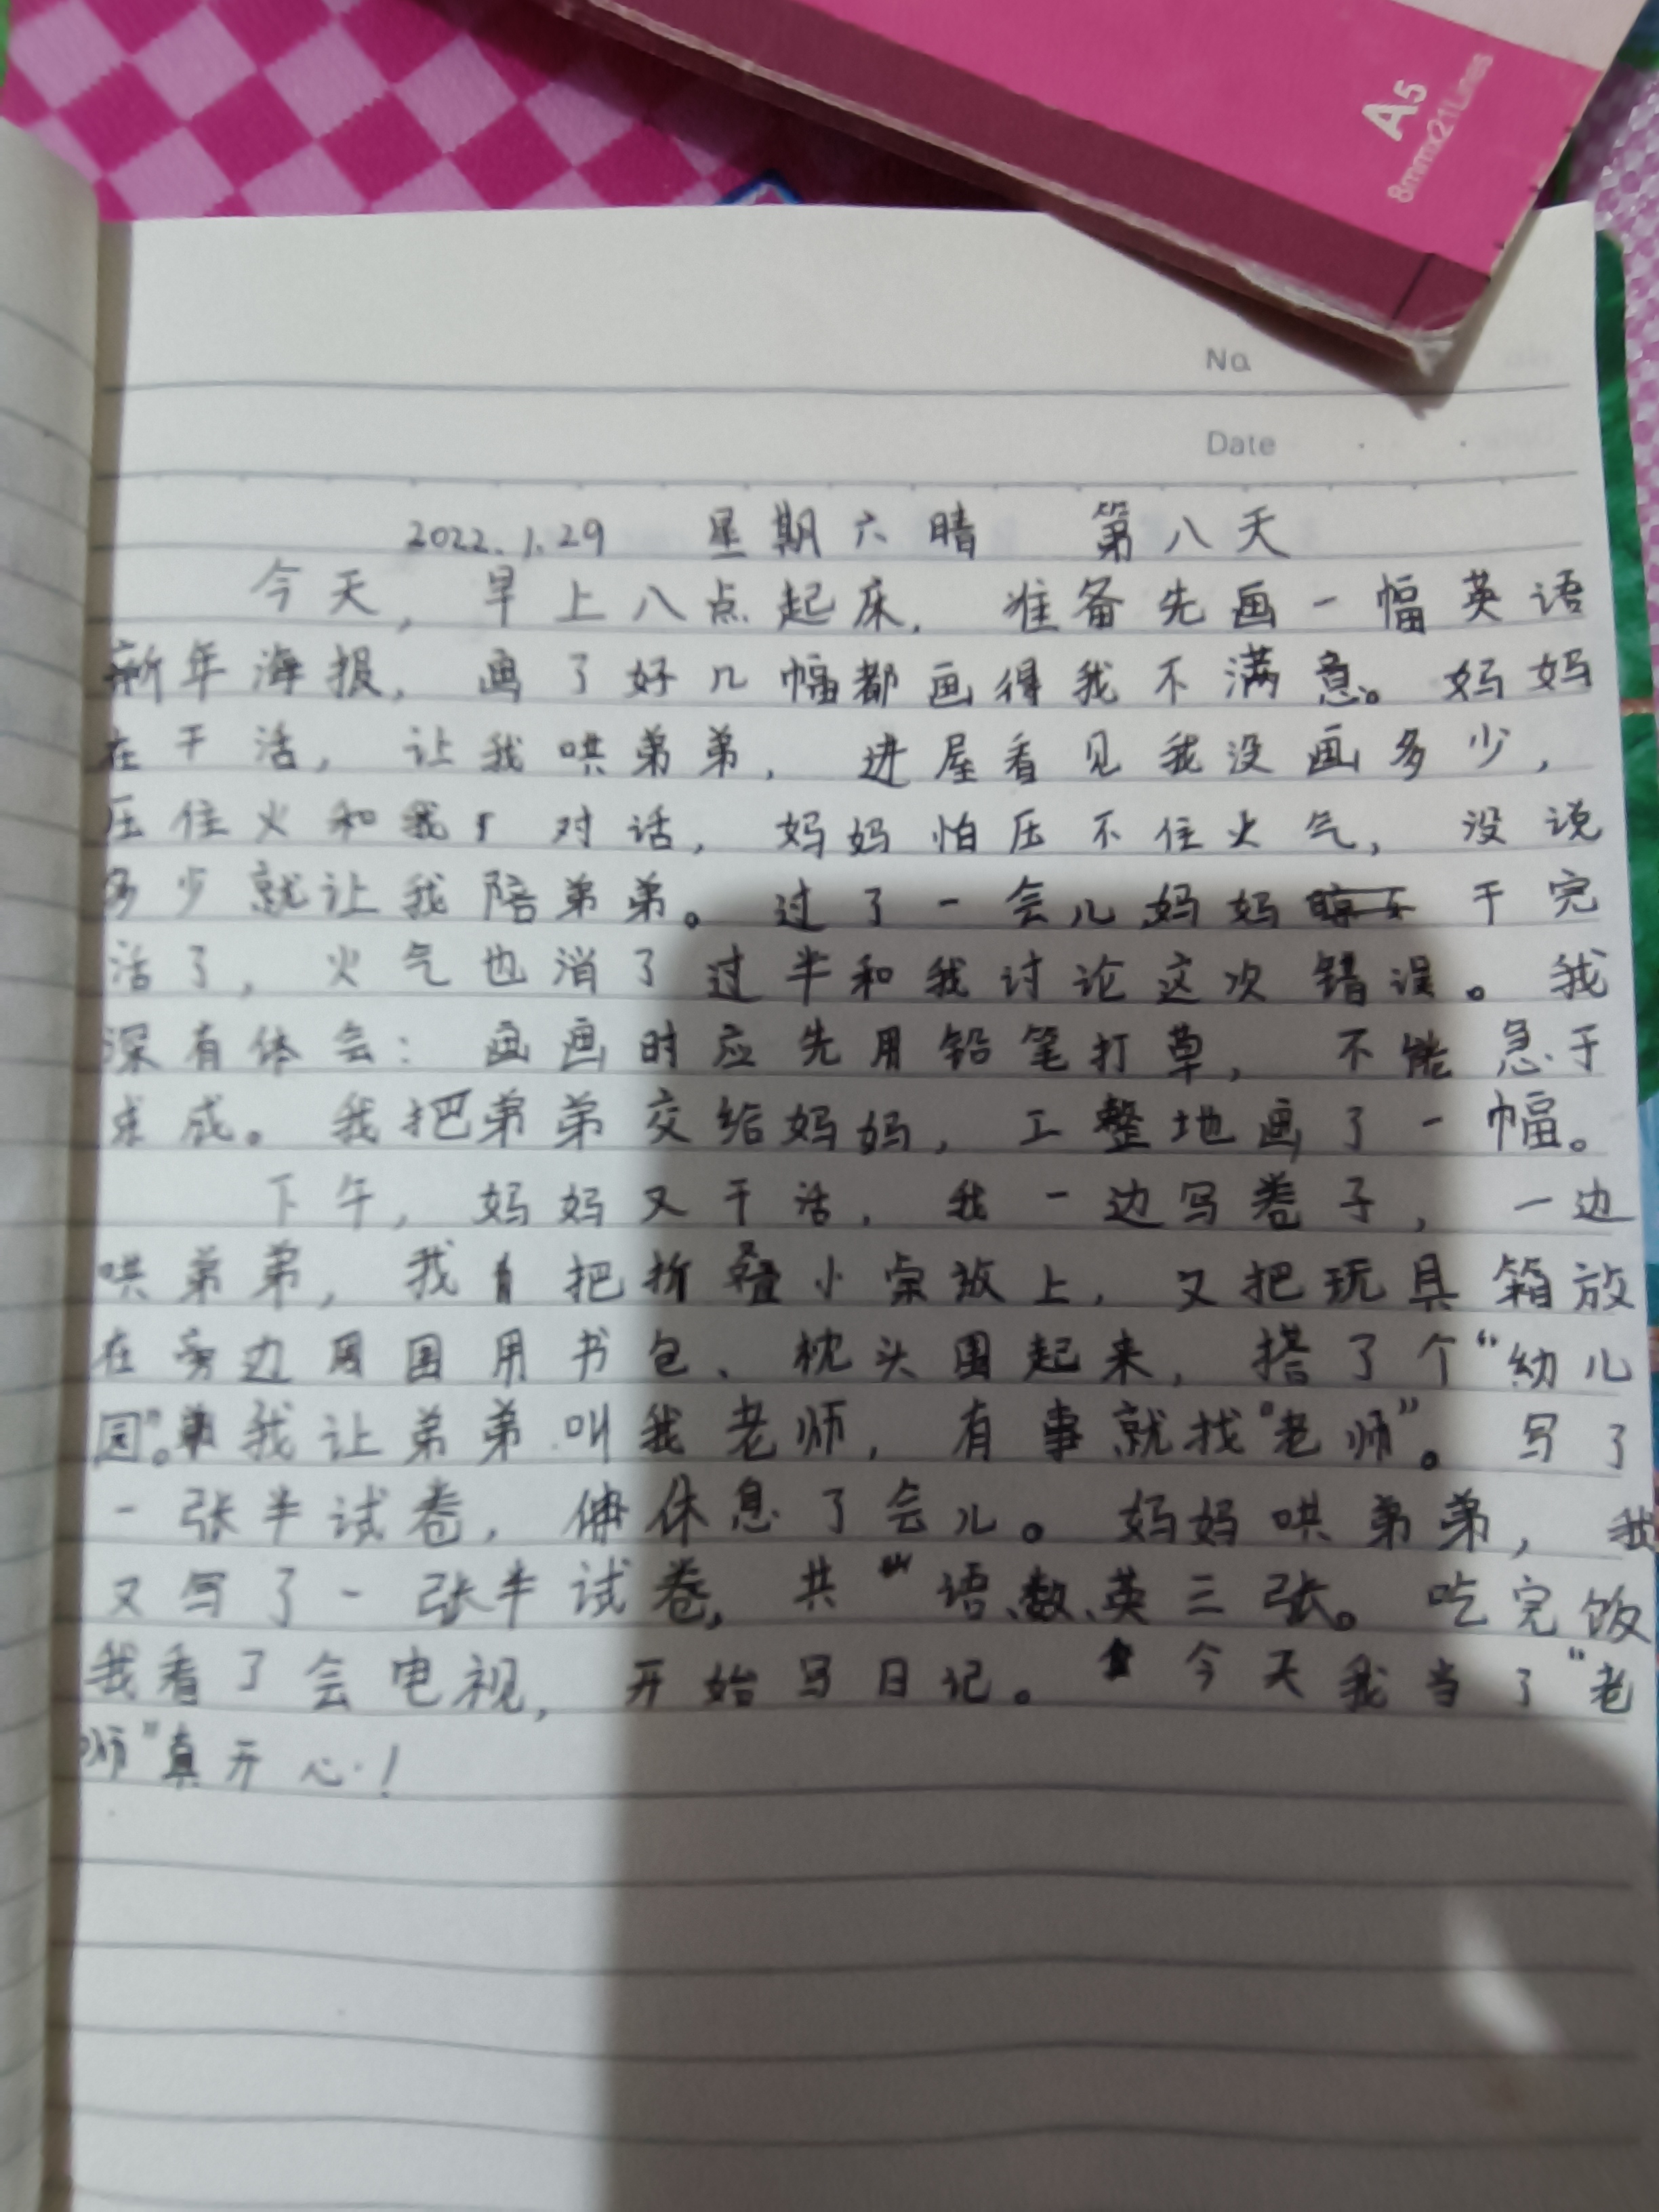 A5
8mm×21Lines
No.
Date
2022.1.29 星期六 晴 第八天
今天，早上八点起床，准备先画一幅英语
新年海报，画了好几幅都画得我不满意。妈妈
在干活，让我哄弟弟，进屋看见我没画多少，
压住火和我对话，妈妈怕压不住火气，没说
多少就让我陪弟弟。过了一会儿妈妈干完
活了，火气也消了过半和我讨论这次错误。我
深有体会：画画时应先用铅笔打草，不能急于
求成。我把弟弟交给妈妈，工整地画了一幅。
下午，妈妈又干活，我一边写卷子，一边
哄弟弟，我把折叠小桌放上，又把玩具箱放
在旁边周围用书包、枕头围起来，搭了个“幼儿
园”。我让弟弟叫我老师，有事就找“老师”。写了
一张半试卷，休息了会儿。妈妈哄弟弟，我
又写了一张半试卷，共语、数、英三张。吃完饭
我看了会电视，开始写日记。今天我当了“老
师”真开心！